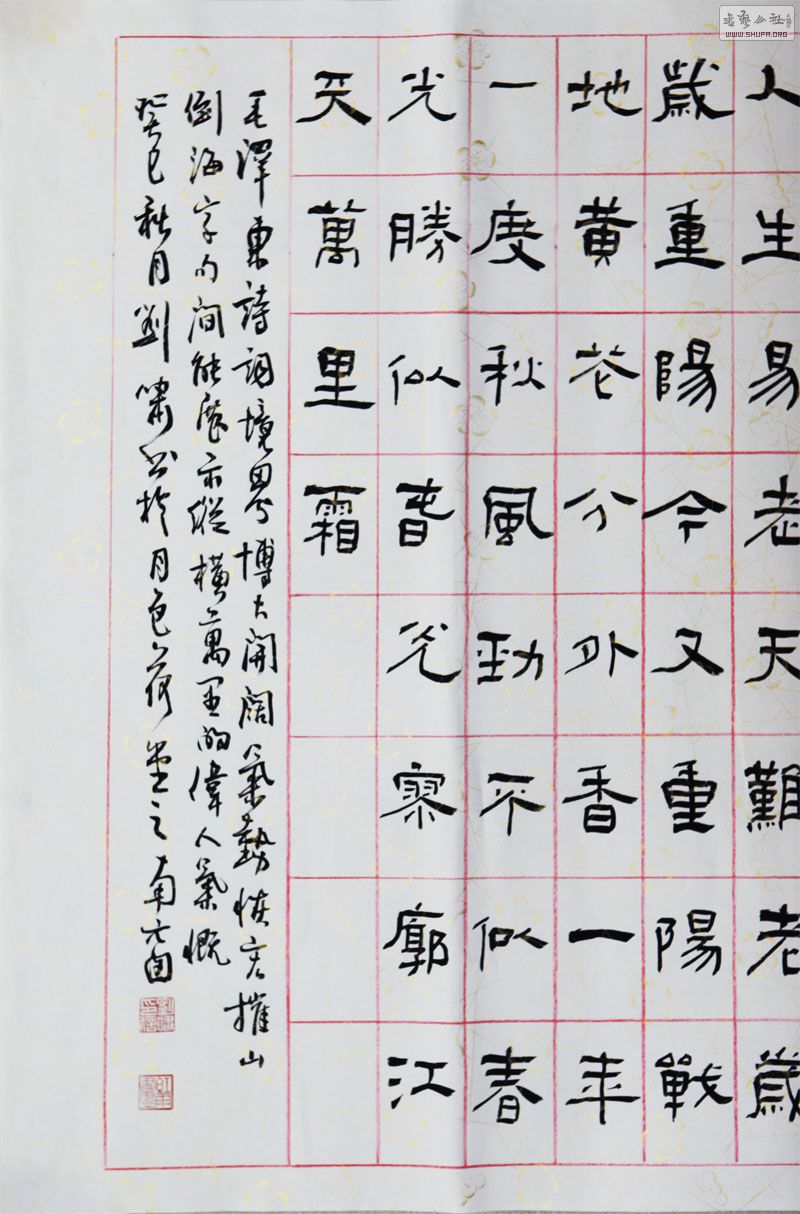 人生易老天難老歲
歲重陽今又重陽戰
地黄花分外香一年
一度秋風勁不似春
光勝似春光寥廓江
天萬里霜
毛澤東詩詞境界博大開闊氣勢恢宏摧山
倒海字句間能展示縱橫萬里的偉人氣概
癸巳秋月劉嘯書於月色荷塘之南窗
書藝公社
WWW.SHUFA.ORG